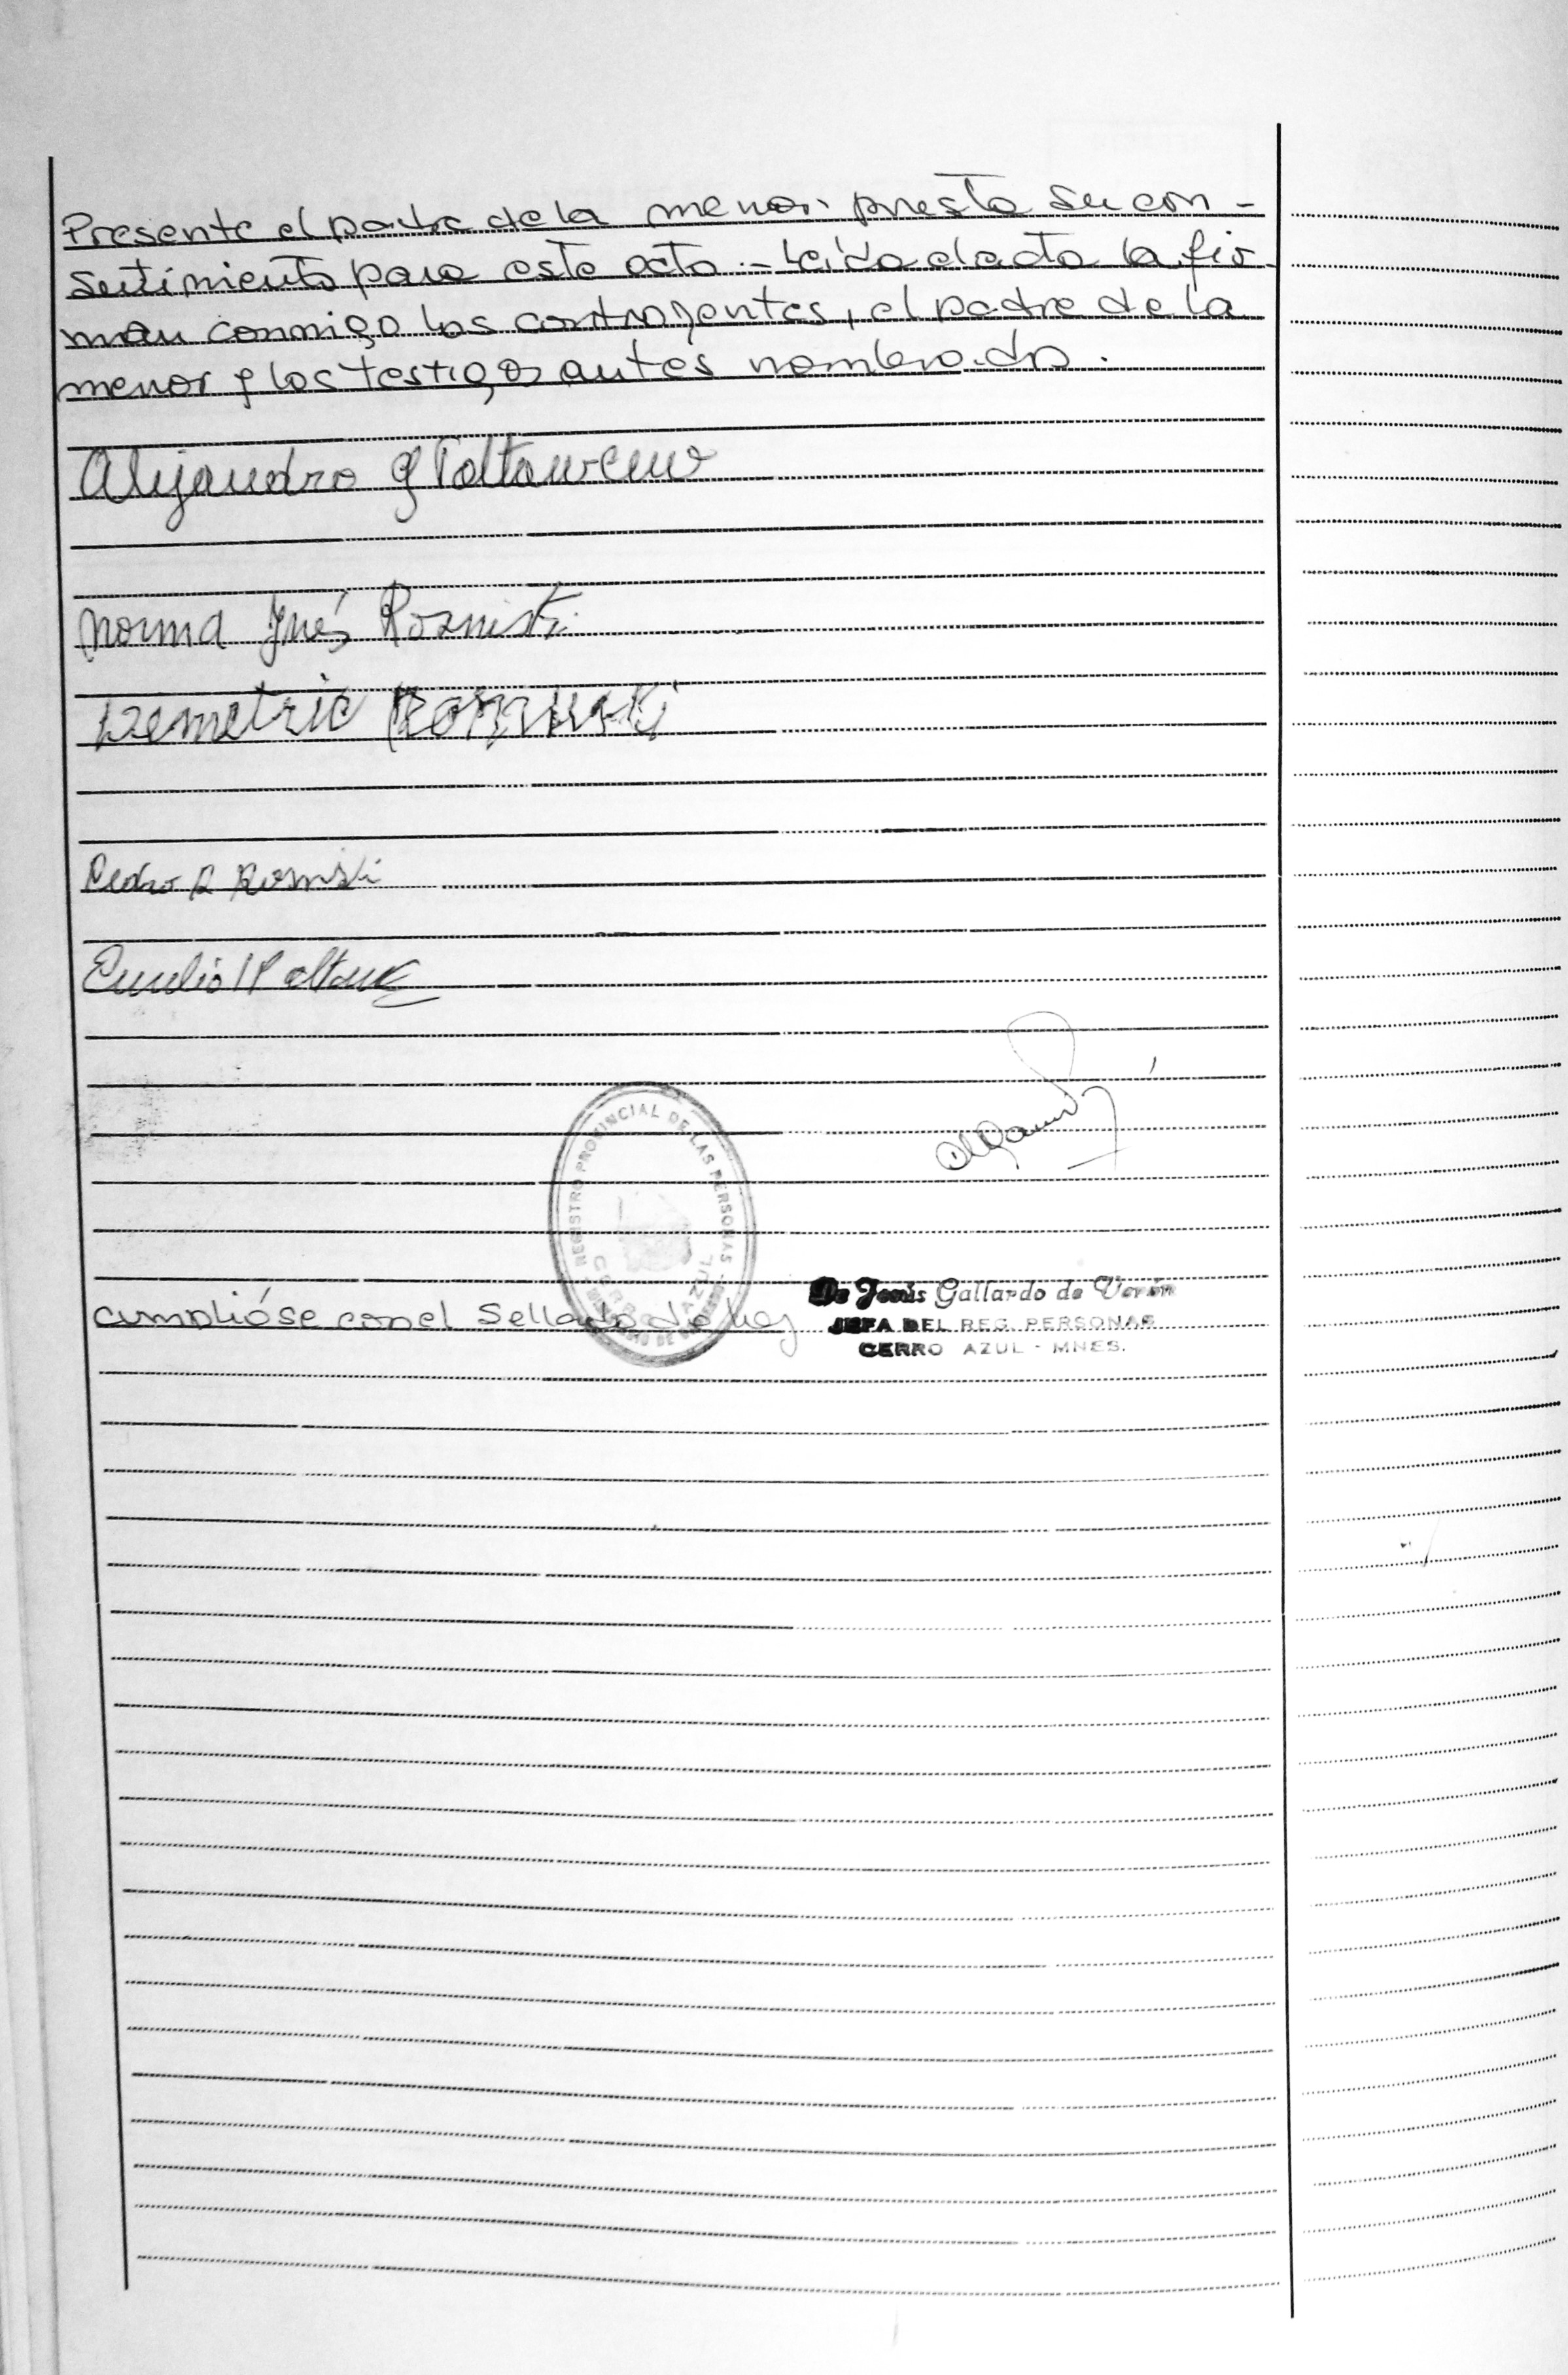 Presente el padre de la menor presta su con-
sentimiento para este acto.- Leída el acta la fir-
man conmigo los contrayentes, el padre de la
menor y los testigos antes nombrados.
Alejandro
Norma Inés Rosniski
Demetrio
Pedro R Rosniski
Emilio
REGISTRO PROVINCIAL DE LAS PERSONAS
CERRO AZUL
De Jesús Gallardo de Verón
cumplióse con el Sellado de ley
JEFA DEL REG. PERSONAS
CERRO AZUL - MNES.